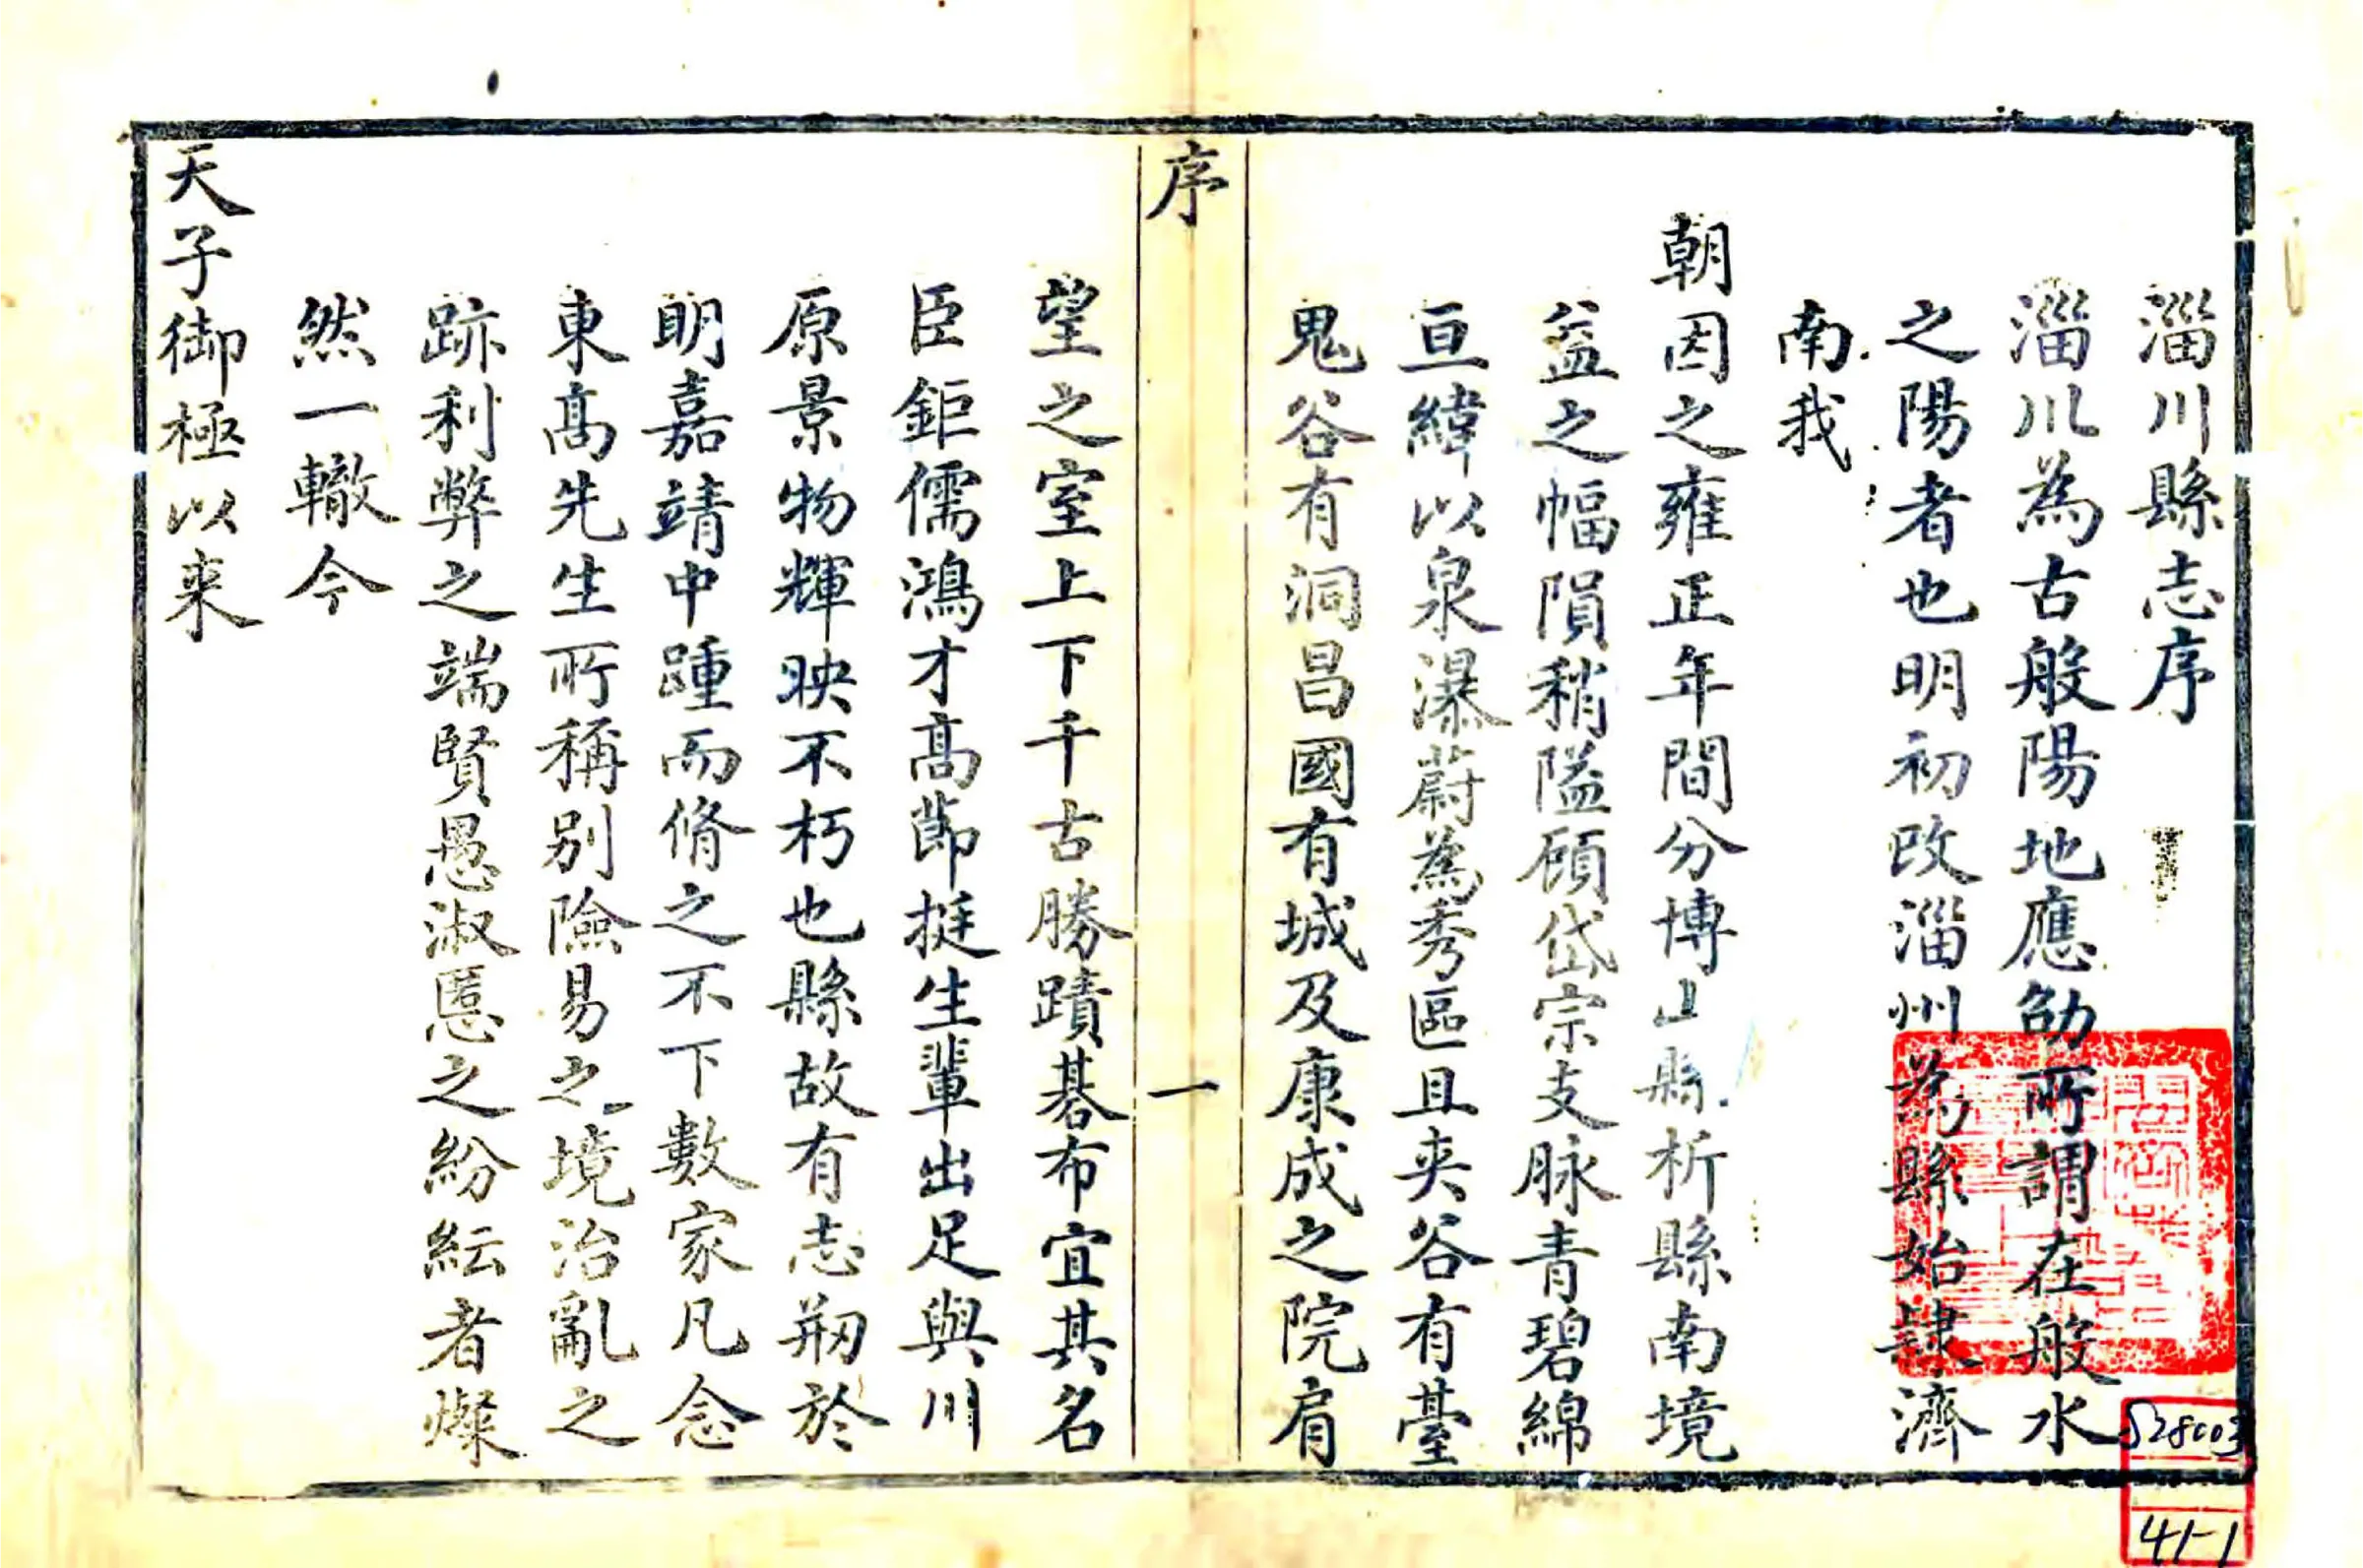 淄川縣志序
淄川為古般陽地應劭所謂在般水
之陽者也明初改淄州為縣始隷濟
南我
朝因之雍正年間分博山縣析縣南境
益之幅隕稍隘顧岱宗支脉青碧綿
亘緯以泉瀑蔚為秀區且夹谷有臺
鬼谷有洞昌國有城及康成之院肩
序
一
望之室上下千古勝蹟碁布宜其名
臣鉅儒鴻才高節挺生輩出足與川
原景物輝映不朽也縣故有志刱於
明嘉靖中踵而脩之不下數家凡念
東高先生所稱別險易之境治亂之
跡利弊之端賢愚淑慝之紛紜者燦
然一轍今
天子御極以来
528003
41-1